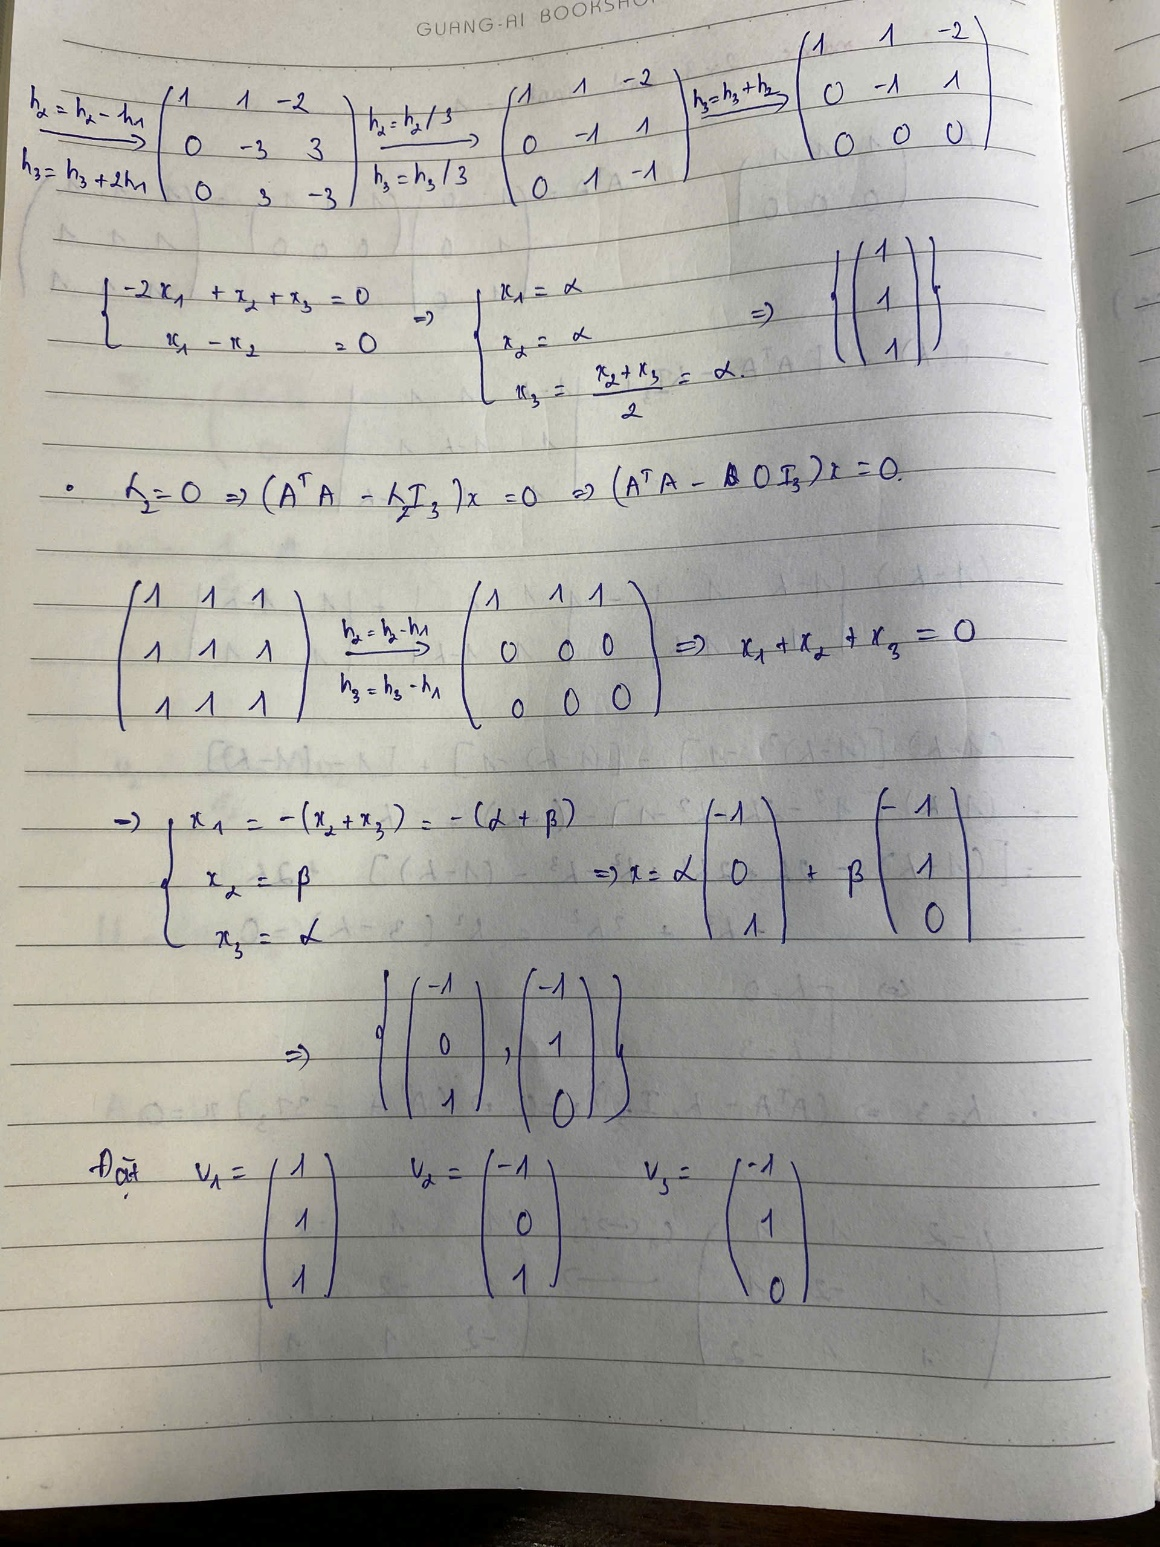 GUANG-AI BOOKSHOP
h₂ = h₂ - h₁
h₃ = h₃ + 2h₁
→ (1 1 -2; 0 -3 3; 0 3 -3) h₂ = h₂/3 → h₃ = h₃/3 (1 1 -2; 0 -1 1; 0 1 -1) h₃ = h₃ + h₂ → (1 1 -2; 0 -1 1; 0 0 0)
{ -2x₁ + x₂ + x₃ = 0 ; x₁ - x₂ = 0 => { x₁ = α ; x₂ = α ; x₃ = (x₂ + x₃)/2 = α. => { (1; 1; 1) }
• λ₂ = 0 => (AᵀA - λ₂I₃)x = 0 => (AᵀA - 0I₃)x = 0.
(1 1 1; 1 1 1; 1 1 1) h₂ = h₂ - h₁ → h₃ = h₃ - h₁ (1 1 1; 0 0 0; 0 0 0) => x₁ + x₂ + x₃ = 0
=> { x₁ = -(x₂ + x₃) = -(α + β) ; x₂ = β ; x₃ = α => x = α (-1; 0; 1) + β (-1; 1; 0)
=> { (-1; 0; 1), (-1; 1; 0) }
Đặt v₁ = (1; 1; 1) v₂ = (-1; 0; 1) v₃ = (-1; 1; 0)